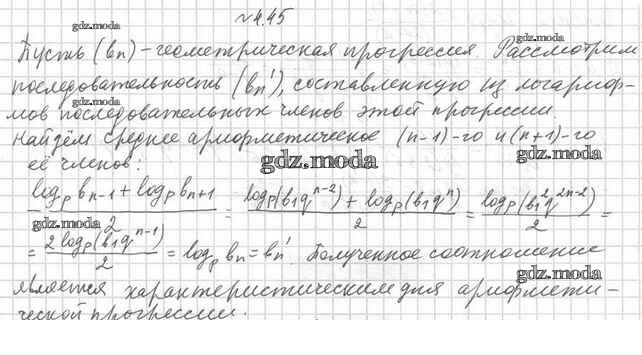 №4.45
gdz.moda
Пусть (bn) – геометрическая прогрессия. Рассмотрим
последовательность (bn'), составленную из логариф-
gdz.moda
мов последовательных членов этой прогрессии.
gdz.moda
Найдём среднее арифметическое (n-1)-го и (n+1)-го
gdz.moda
её членов:
gdz.moda
(log_p b_{n-1} + log_p b_{n+1})/2 = (log_p(b₁q^{n-2}) + log_p(b₁q^n))/2 = log_p(b₁²q^{2n-2})/2 =
gdz.moda
= 2 log_p(b₁q^{n-1})/2 = log_p bn = bn'. Полученное соотношение
gdz.moda
является характеристическим для арифмети-
ческой прогрессии.